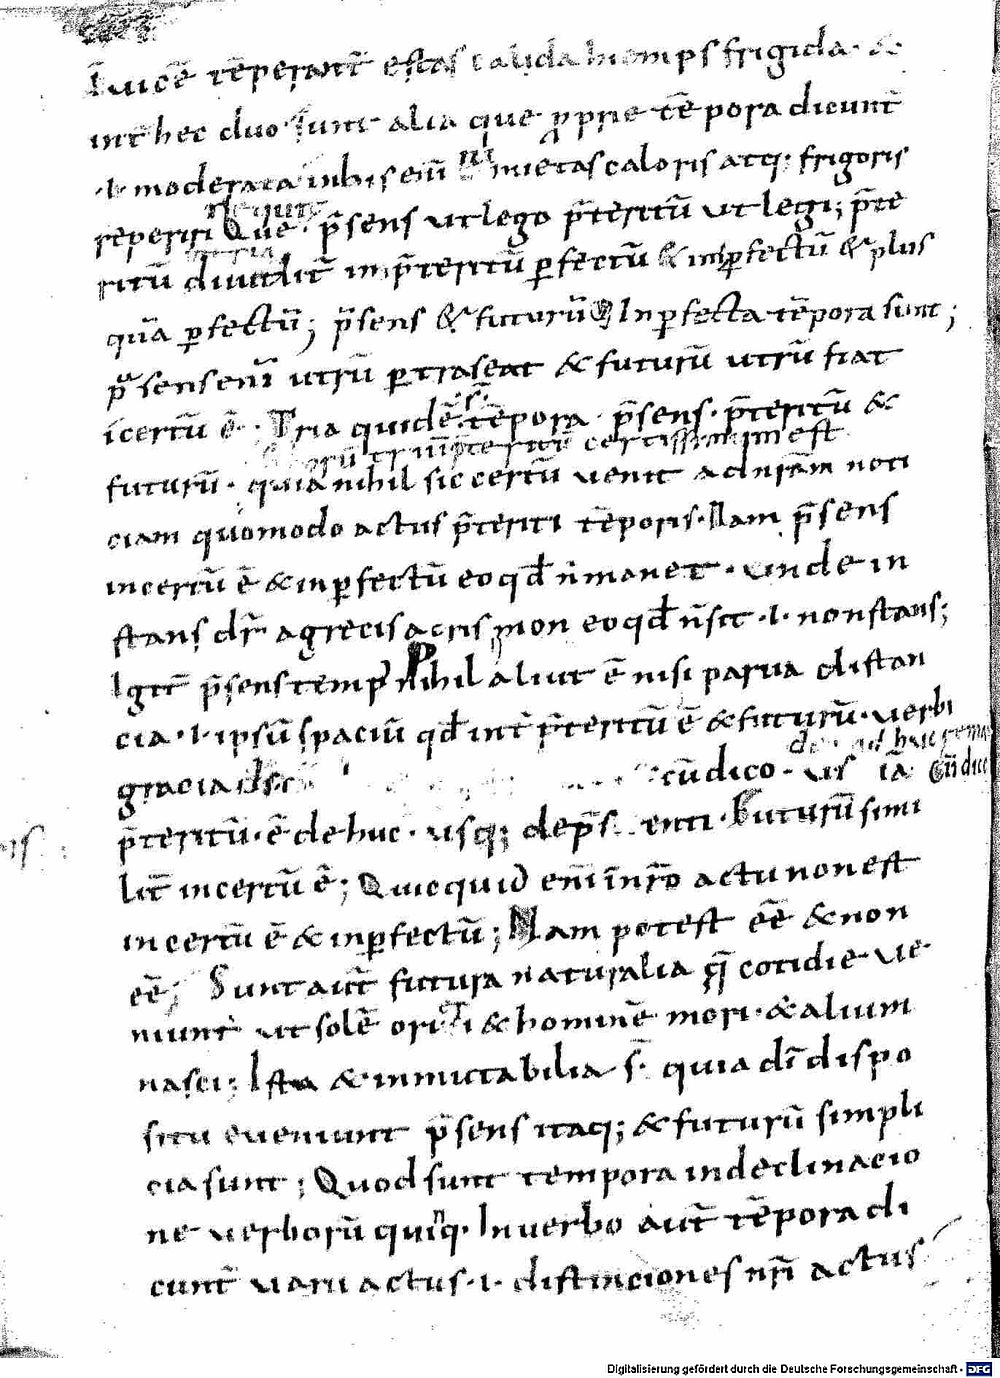 Inuicē tēperant̄ estas calida hiemps frigida · &
int̄ hec duo sunt alia que ꝓprie tēpora dicunt̄
·i· moderata in his eni̅ nimietas caloris atq; frigoris
reperiri Que · p̄sens ut lego p̄teritū ut legi; p̄te
ritū diuidit̄ in p̄teritū ꝑfectū & inꝑfectū & plus
quā ꝑfectū; p̄sens & futurū Inꝑfecta tēpora sunt;
p̄sens enī utrū ꝑtraseat & futurū utrū fiat
icertū ē · Tria quidē s̄ tēpora · p̄sens · p̄teritū &
certissimum est
futurū · quia nihil sic certū uenit ad nr̄am noti
ciam quomodo actus p̄teriti tēporis · Nam p̄sens
incertū ē & inꝑfectū eo qd̄ n̄ manet · Unde in
stans dr̄ a grecis acrismon eo qd̄ n̄ sit ·i· non stans;
Igit̄ p̄sens temp' Nihil aliut ē nisi parua distan
cia ·i· ipsū spaciū qd̄ int̄ p̄teritū ē & futurū · uerbi
gracia cū dico · us iā cū dico
p̄teritū · ē de huc · usq; de p̄senti · Futurū simi
lit̄ incertū ē; Quicquid enī in nr̄o actu non est
incertū ē & inꝑfectū; Nam potest eē & non
eē; Sunt aut̄ futura naturalia q̄ cotidie ue
niunt ut solē oriri & hominē mori · & alium
nasci; Ista & inmutabilia s̄ · quia dī dispo
situ eueniunt p̄sens itaq; & futurū simpli
cia sunt; Quod sunt tempora in declinacio
ne uerborū quinq · In uerbo aut̄ tēpora di
cunt̄ uarii actus ·i· distinciones nr̄i actus
Digitalisierung gefördert durch die Deutsche Forschungsgemeinschaft - DFG